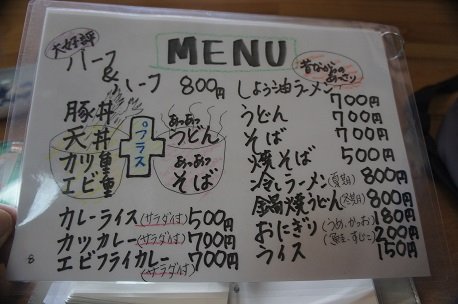 MENU
大好評
ハーフ
&
ハーフ 800円
豚丼
天丼
カツ重
エビ重
プラス
あっつあつ
うどん
あっつあつ
そば
カレーライス(サラダ付) 500円
カツカレー(サラダ付) 700円
エビフライカレー 700円
(サラダ付)
昔ながらの
あっさり
しょう油ラーメン 700円
うどん 700円
そば 700円
焼そば 500円
冷しラーメン(夏期) 800円
鍋焼うどん(冬期) 800円
おにぎり(うめ、かつお) 180円
(鮭、すじこ) 200円
ライス 150円
8